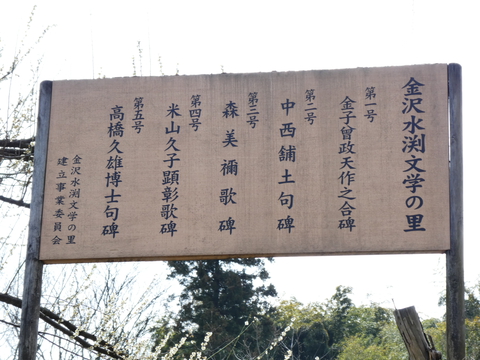 金沢水渕文学の里
第一号
金子曾政天作之合碑
第二号
中西舗土句碑
第三号
森美禰歌碑
第四号
米山久子顕彰歌碑
第五号
高橋久雄博士句碑
金沢水渕文学の里
建立事業委員会